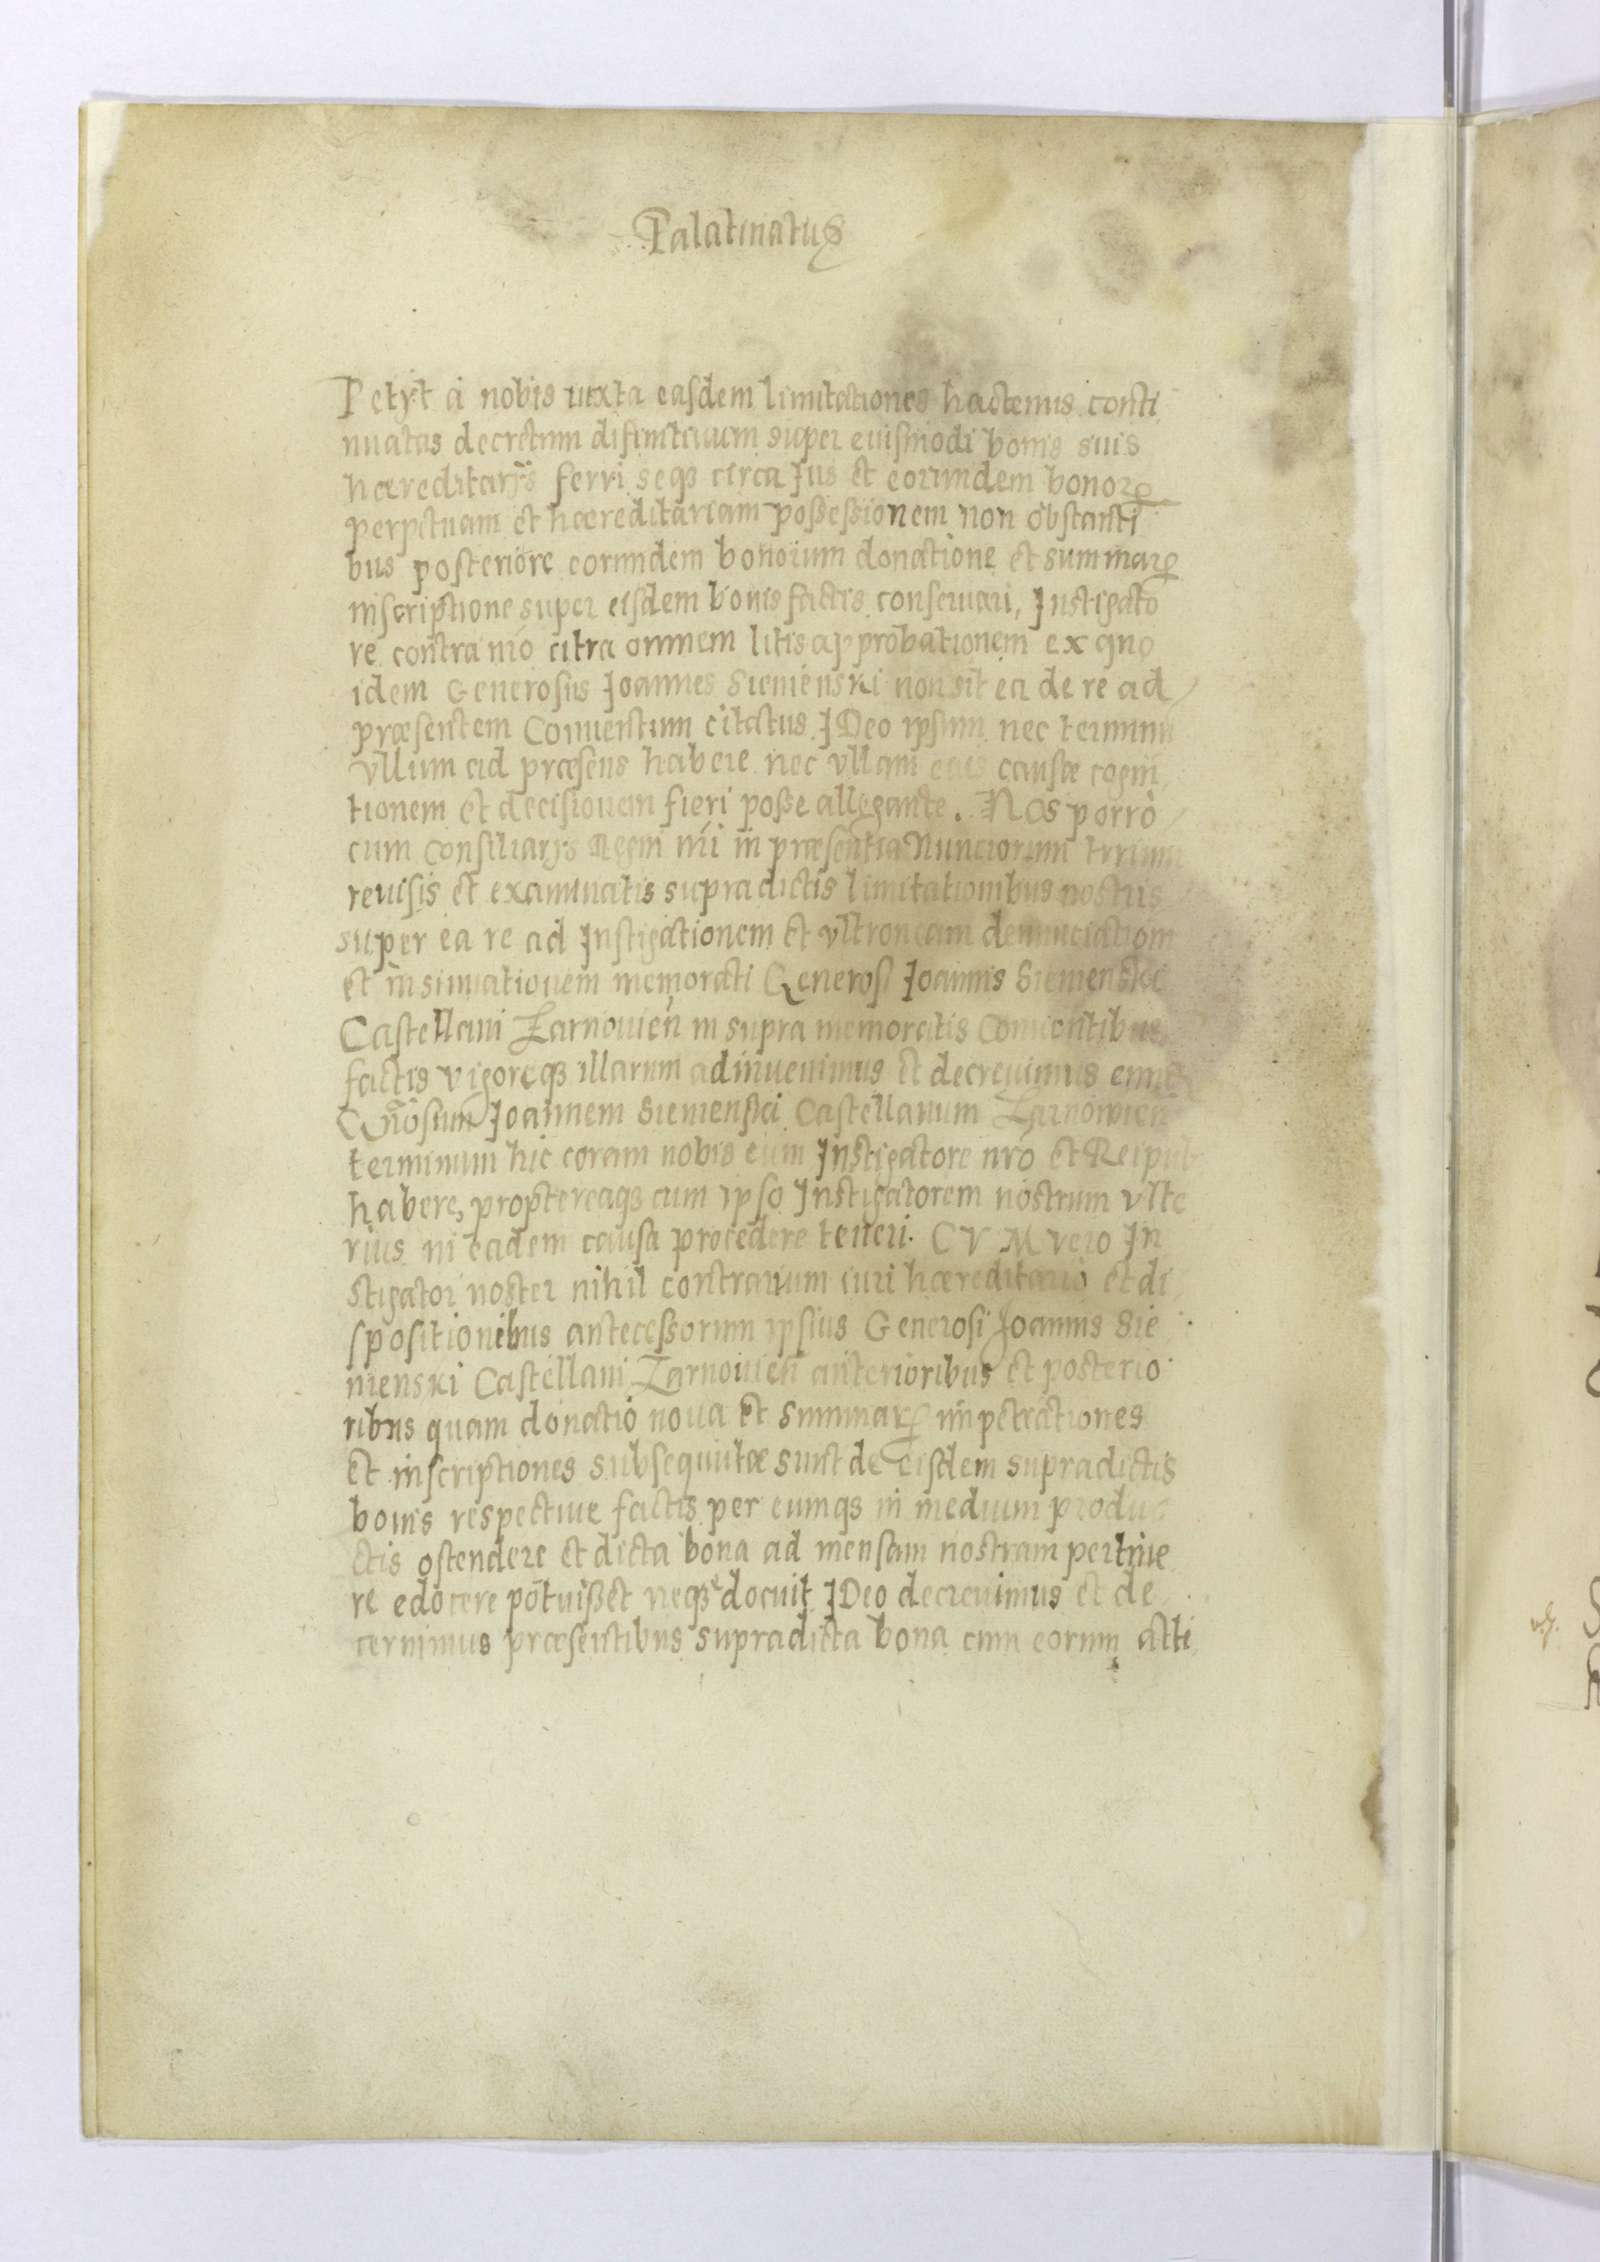 Palatinatus
Petÿt a nobis iuxta easdem limitationes hactenus conti
nuatas decretum difinitiuum super euismodi bonis suis
hæreditarÿs ferri seqȝ circa Jus et eorundem bonorꝝ
perpetuam et hæreditariam possessionem non obstanti
bus posteriore eorundem bonorum donatione et summarꝝ
inscriptione super eisdem bonis factis conseruari, Instigato
re contra nr̃o citra omnem litis approbationem ex quo
idem Generosus Joannes Sienienski non sit ea de re ad
præsentem Conuentum citatus JDeo ipsum nec terminũ
vllum ad præsens habere nec vllam eius causæ cogni
tionem et decisionem fieri posse allegante. Nos porrò
cum Consiliarÿs Regni nr̃i in præsentia Nunciorum trrum
reuisis et examinatis supradictis limitationibus nostris
super ea re ad Instigationem et vltroneam denunciationẽ
et insinuationem memorati Generosi Joannis Sienienski
Castellani Zarnouień in supra memoratis Conuentibus
factis vigoreqȝ illarum adinuenimus et decreuimus eund
Gñosum Joannem Sienienski Castellanum Zarnowień
terminum hic coram nobis cum Instigatore nr̃o et Reipub
habere, propterеaqȝ cum ipso Instigatorem nostrum vlte
rius in eadem causa procedere teneri. CVM vero In
stigator noster nihil contrarium iuri hæreditario et di
spositionibus antecessorum ipsius Generosi Joannis Sie
nienski Castellani Zarnouień anterioribus et posterio
ribus quam donatio noua et summarꝝ impetrationes
et inscriptiones subsequutæ sunt de eisdem supradictis
bonis respectiue factis per eumqȝ in medium produ
ctis ostendere et dicta bona ad mensam nostram pertine
re edocere potuisset neqȝ docuit JDeo decreuimus et de
cernimus præsentibus supradicta bona cum eorum atti